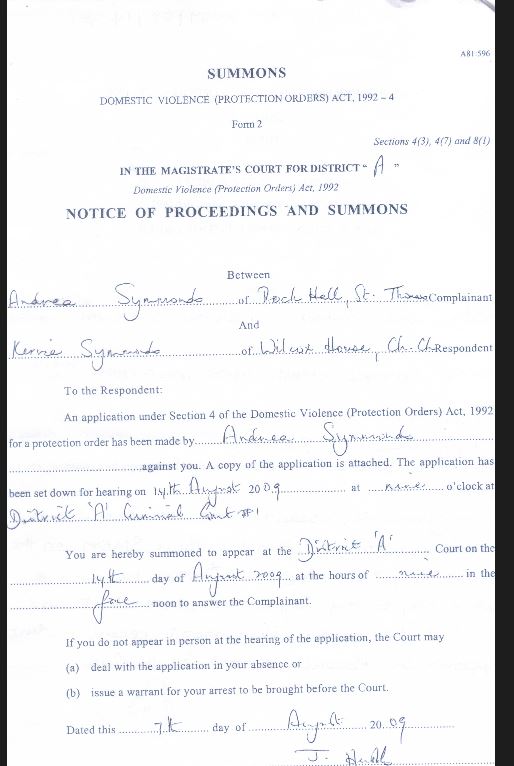 A81 596
SUMMONS
DOMESTIC VIOLENCE (PROTECTION ORDERS) ACT, 1992 – 4
Form 2
Sections 4(3), 4(7) and 8(1)
IN THE MAGISTRATE'S COURT FOR DISTRICT " A "
Domestic Violence (Protection Orders) Act, 1992
NOTICE OF PROCEEDINGS AND SUMMONS
Between
Andrea Symmonds of Rock Hall, St. Thomas Complainant
And
Kerrie Symmonds of Wilcox House, Ch. Ch. Respondent
To the Respondent:
An application under Section 4 of the Domestic Violence (Protection Orders) Act, 1992
for a protection order has been made by Andrea Symmonds
against you. A copy of the application is attached. The application has
been set down for hearing on 14th August 2009 at nine o'clock at
District 'A' Criminal Court #1
You are hereby summoned to appear at the District 'A' Court on the
14th day of August 2009 at the hours of nine in the
fore noon to answer the Complainant.
If you do not appear in person at the hearing of the application, the Court may
(a) deal with the application in your absence or
(b) issue a warrant for your arrest to be brought before the Court.
Dated this 7th day of August 2009
J.